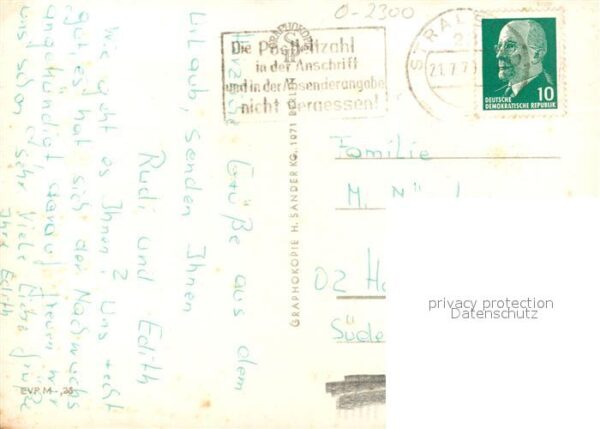 O-2300
Die Postleitzahl
in der Anschrift
und in der Absenderangabe
nicht vergessen!
STRALS
21.7.7
10
DEUTSCHE
DEMOKRATISCHE REPUBLIK
Herzliche Grüße aus dem
Urlaub, senden Ihnen
Rudi und Edith
Wie geht es Ihnen? Uns geht
gut es hat sich der Nachwuchs
angekündigt, darauf freuen wir
uns schon sehr. Viele liebe Grüße
Ihre Edith
GRAPHOKOPIE H. SANDER KG, 1071 BERLIN
Familie
M.
02
Süde
EVP M -,25
privacy protection
Datenschutz